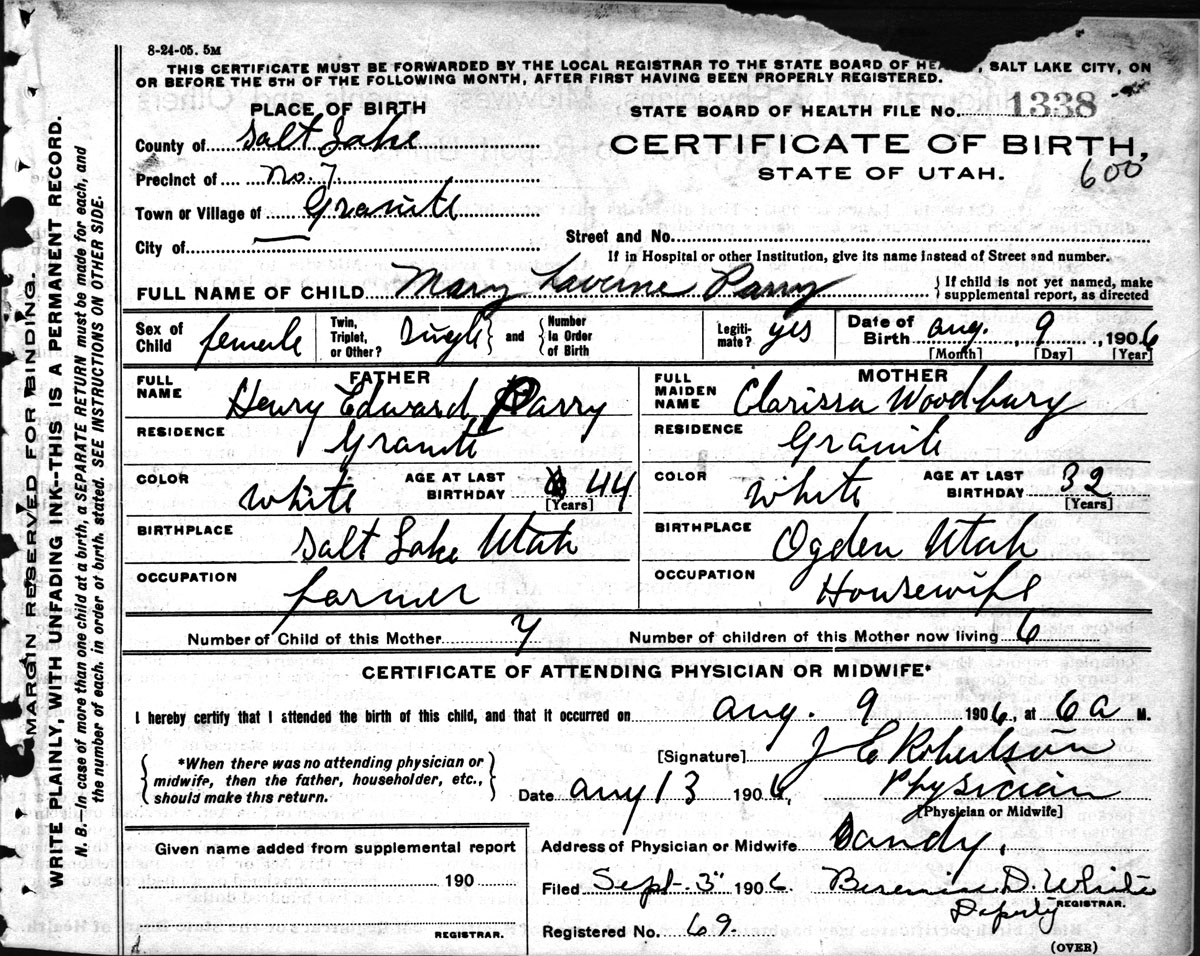 8-24-05. 5M
THIS CERTIFICATE MUST BE FORWARDED BY THE LOCAL REGISTRAR TO THE STATE BOARD OF HEA , SALT LAKE CITY, ON
OR BEFORE THE 5TH OF THE FOLLOWING MONTH, AFTER FIRST HAVING BEEN PROPERLY REGISTERED.
PLACE OF BIRTH
STATE BOARD OF HEALTH FILE No. 1338
County of Salt Lake
CERTIFICATE OF BIRTH,
STATE OF UTAH.
600
Precinct of No. 7.
Town or Village of Granite
City of —
Street and No.
If in Hospital or other Institution, give its name instead of Street and number.
FULL NAME OF CHILD Mary Laverne Parry
{ If child is not yet named, make
supplemental report, as directed
Sex of Child female
Twin, Triplet, or Other? Single } and { Number in Order of Birth
Legitimate? yes
Date of Birth aug. 9, 1906
[Month] [Day] [Year]
FATHER
FULL NAME Henry Edward Parry
RESIDENCE Granite
COLOR White
AGE AT LAST BIRTHDAY 44
[Years]
BIRTHPLACE Salt Lake Utah
OCCUPATION farmer
MOTHER
FULL MAIDEN NAME Clarissa Woodbury
RESIDENCE Granite
COLOR White
AGE AT LAST BIRTHDAY 32
[Years]
BIRTHPLACE Ogden Utah
OCCUPATION Housewife
Number of Child of this Mother 7
Number of children of this Mother now living 6
CERTIFICATE OF ATTENDING PHYSICIAN OR MIDWIFE*
I hereby certify that I attended the birth of this child, and that it occurred on aug. 9 1906, at 6a M.
{ *When there was no attending physician or
midwife, then the father, householder, etc.,
should make this return. }
[Signature] J E Robertson
Date aug 13 1906,
Physician
[Physician or Midwife]
Address of Physician or Midwife Sandy.
Given name added from supplemental report
190
REGISTRAR.
Filed Sept 3" 1906. D. White
REGISTRAR.
Deputy
Registered No. 69.
(OVER)
MARGIN RESERVED FOR BINDING.
WRITE PLAINLY, WITH UNFADING INK—THIS IS A PERMANENT RECORD.
N. B.—In case of more than one child at a birth, a SEPARATE RETURN must be made for each, and
the number of each, in order of birth, stated. SEE INSTRUCTIONS ON OTHER SIDE.